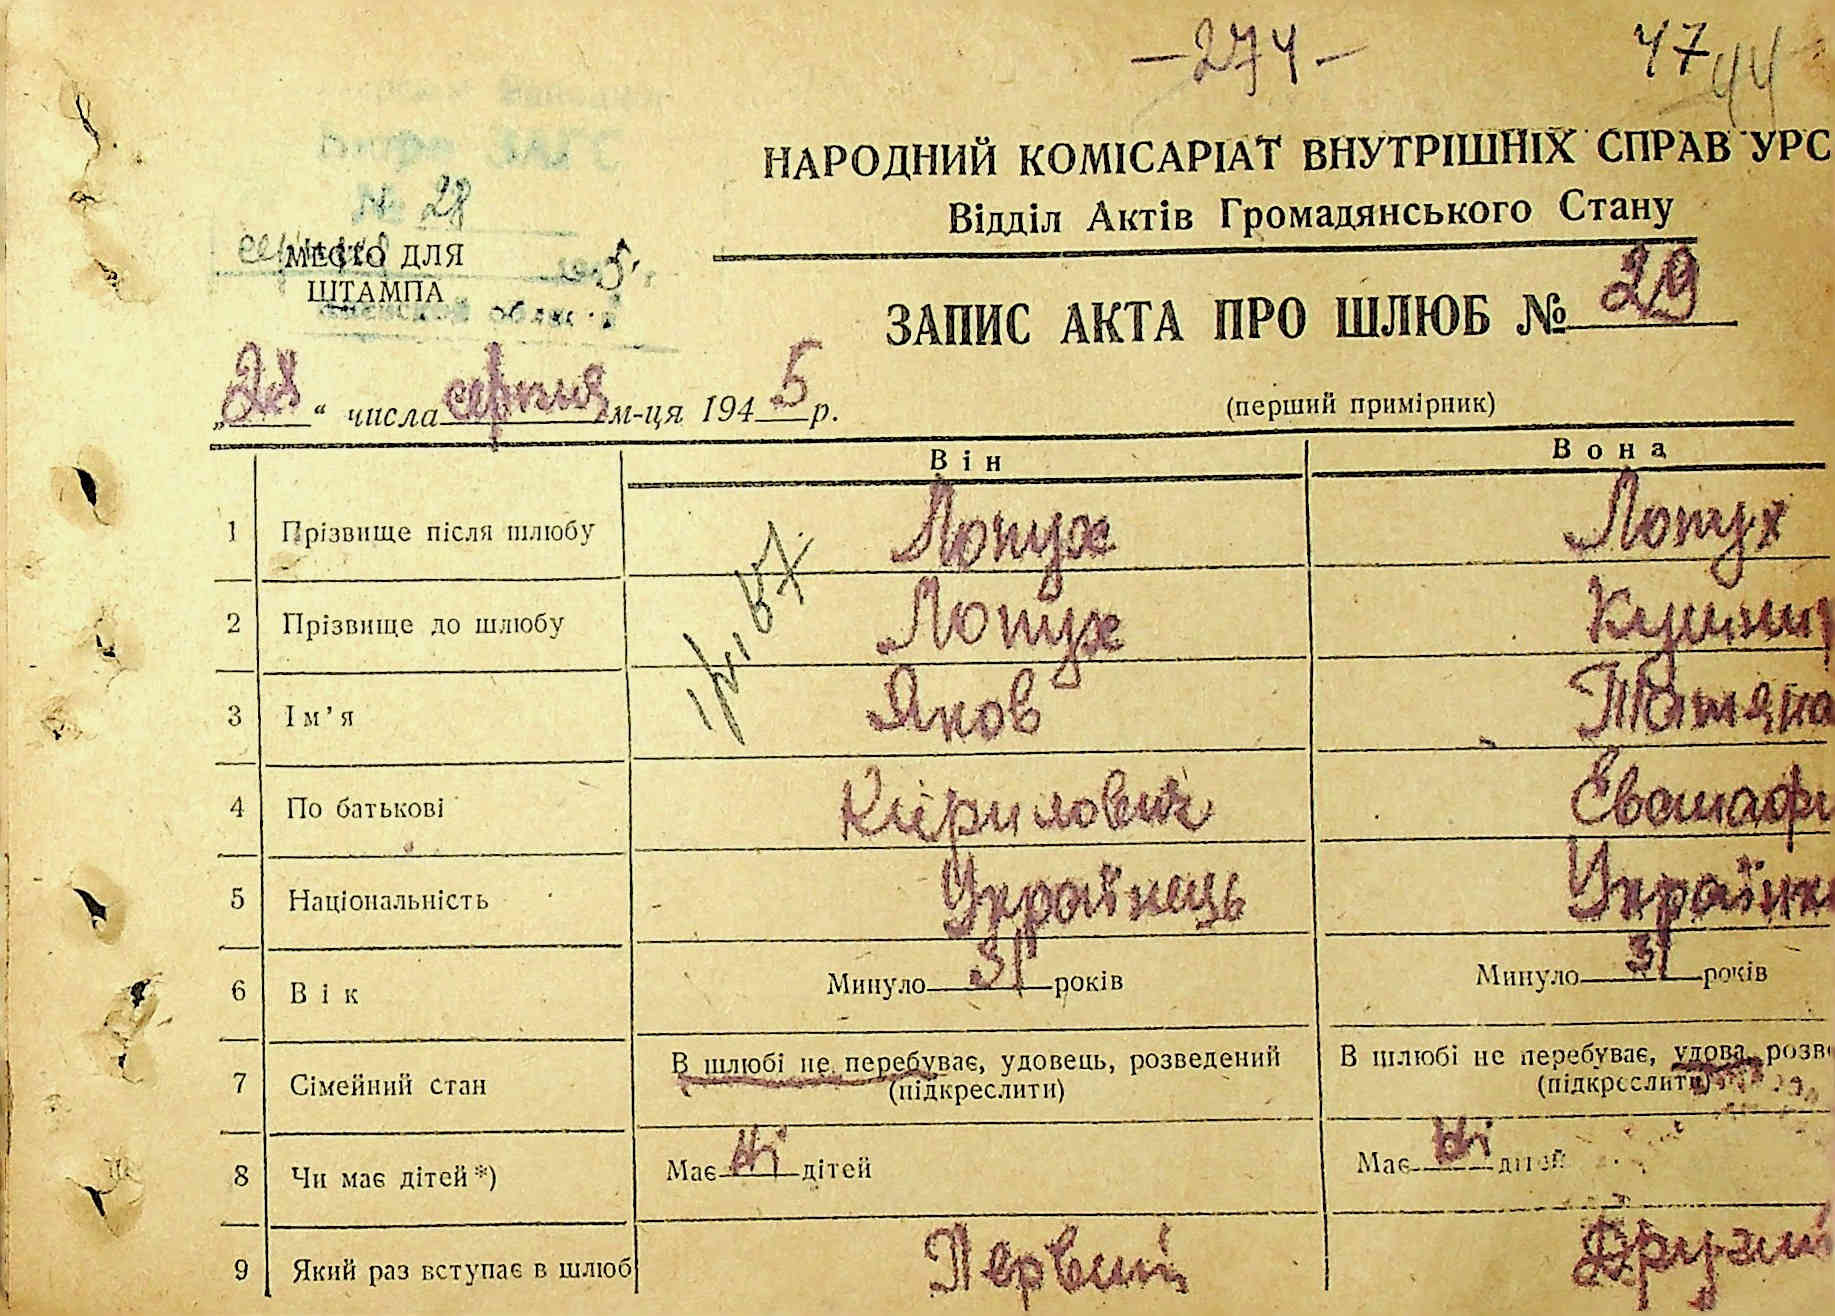 —274—
47
44
ЗАГС
№ 28
НАРОДНИЙ КОМІСАРІАТ ВНУТРІШНІХ СПРАВ УРС
Відділ Актів Громадянського Стану
серпня 5 г.
МЕСТО ДЛЯ
ШТАМПА
област
ЗАПИС АКТА ПРО ШЛЮБ № 29
„28“ числа серпня м-ця 1945 р.
(перший примірник)
Він Вона
1 Прізвище після шлюбу Лопух Лопух
2 Прізвище до шлюбу Лопух Кушнир
3 Ім’я Яков Татяна
4 По батькові Кирилович Євстафи
5 Національність Українець Українк
6 Вік Минуло 31 років Минуло 31 років
7 Сімейний стан В шлюбі не перебуває, удовець, розведений В шлюбі не перебуває, удова, розв
(підкреслити) (підкреслити)
8 Чи має дітей*) Має ні дітей Має ні дітей
9 Який раз вступає в шлюб Первий Другий